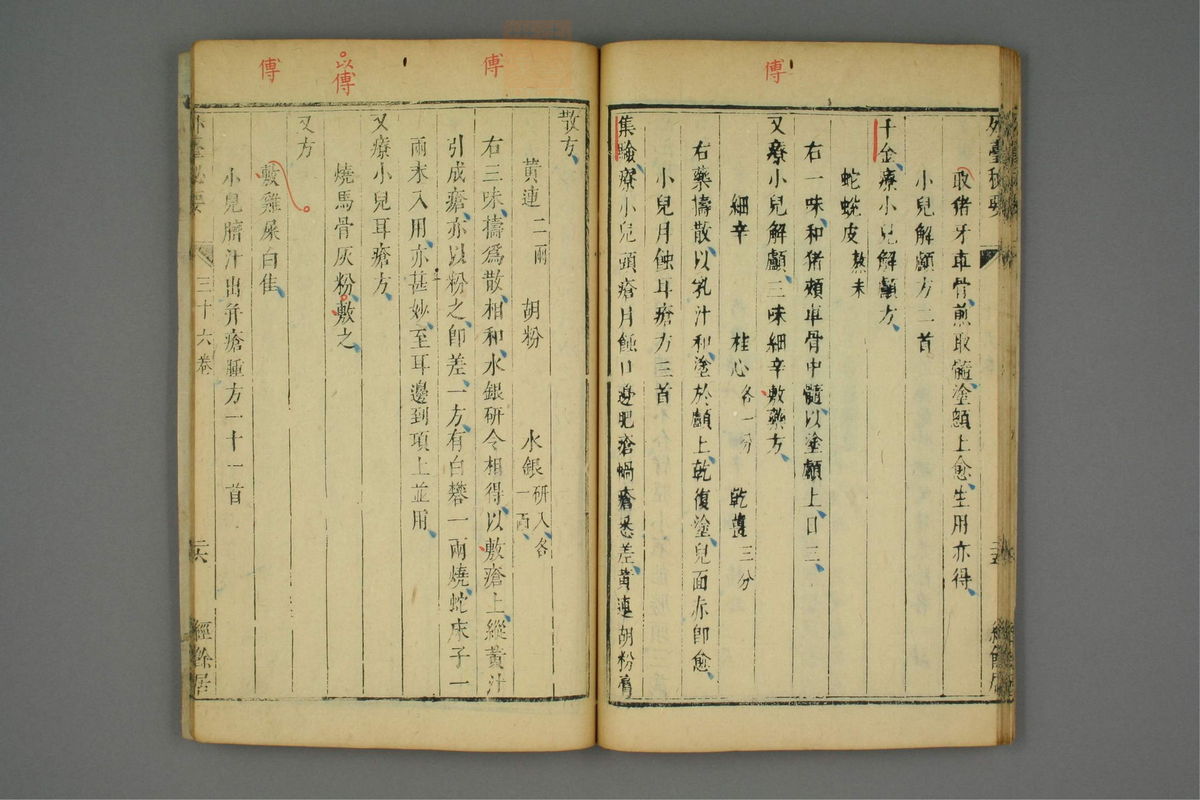 傅
外臺秘要
二十五
經餘居
取猪牙車骨煎取髓塗顖上愈生用亦得
小兒解顱方二首
千金療小兒解顱方
蛇蛻皮 熬末
右一味和猪頰車骨中髓以塗顱上日三
又療小兒解顱三味細辛敷藥方
細辛 桂心各一分 乾薑三分
右藥擣散以乳汁和塗於顱上乾復塗兒面赤即愈
小兒月蝕耳瘡方三首
集驗療小兒頭瘡月蝕口邊肥瘡蝸瘡悉差黃連胡粉膏
傅
以傅
傅
散方
黃連二兩 胡粉 水銀研入各一兩
右三味擣爲散相和水銀研令相得以敷瘡上縱黃汁
引成瘡亦以粉之即差一方有白礬一兩燒蛇床子一
兩末入用亦甚妙至耳邊到項上並用
又療小兒耳瘡方
燒馬骨灰粉敷之
又方
敷雞屎白佳
小兒臍汁出并瘡腫方一十一首
外臺秘要
三十六卷
二六
經餘居